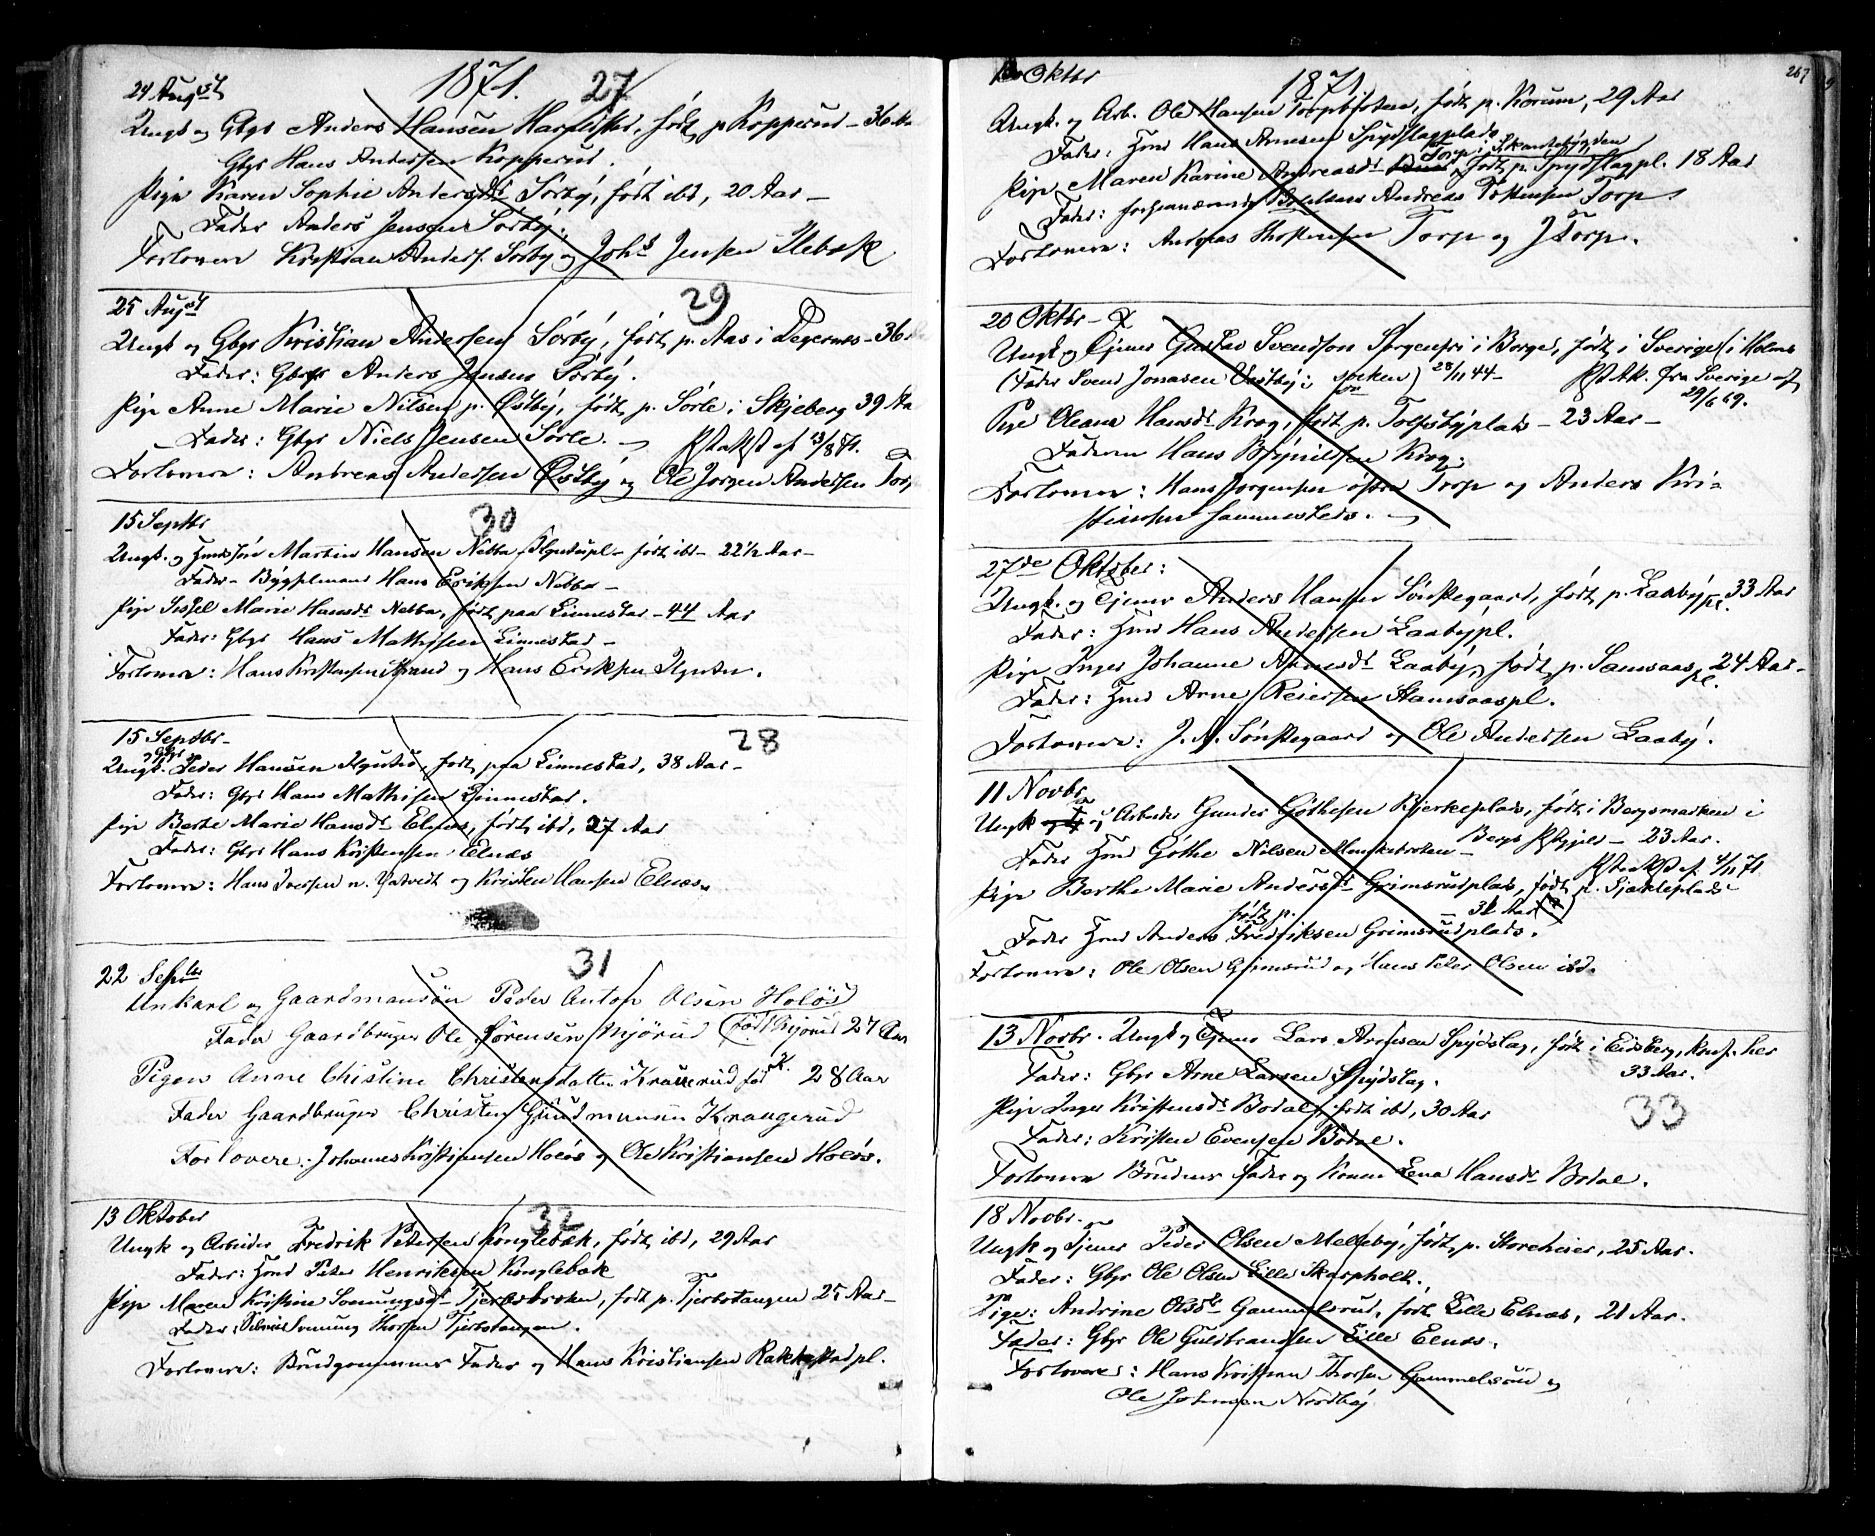 1871. 27
24 August
Ungk og Gbgr Anders Hansen, født p Kopperud - 36
Gbgr Hans Andersen Kopperud.
Pige Karen Sophie Andersdt Sørby, født ibd, 20 Aar -
Fader Anders Jensen Sørby.
Forlovere Kristian Anders. Sørby og Johs Jensen Ilebæk
25 Augst 29
Ungk og Gbgr Kristian Andersen Sørby, født p. Aas i Degernes - 36
Fader: Gbgr Anders Jensen Sørby.
Pige Anne Marie Nilsen p. Østby, født p. Sørle i Skjeberg 39 Aa
Fader: Gbgr Niels Jensen Sørle. - af 23/8 71.
Forlovere: Andreas Andersen Østby og Ole Jørgen Andersen Torp
15 Septbr 30
Ungk. og Martin Hansen Nebba født ibd - 22 1/2 Aar -
Fader - Bygselmand Hans Eriksen Nebba -
Pige Sissel Marie Hansdt Nebba, født paa Linnestad - 44 Aar
Fader: Gbgr Hans Mathisen Linnestad -
Forlovere: Hans Kristensen Strand og Hans Eriksen
15 Septbr - 28
Ungk. Gbgr Peder Hansen, født paa Linnestad, 38 Aar -
Fader: Gbgr Hans Mathisen Linnestad.
Pige Berte Marie Hansdt Elnæs, født ibd, 27 Aar
Fader: Gbgr Hans Kristensen Elnæs
Forlovere: Hans Iversen og Kristen Hansen Elnæs.
22 Septbr 31
Unkarl og Gaardmansøn Peder Anton Olsen Holøs
Fader Gaardbruger Ole Sørensen Mjørud (født Mjørud 27 Aar
Pigen Anne Christine Christensdatter Kragerud fød K. 28 Aar
Fader Gaardbruger Christen Gudmunsen Krangerud
Forlovere: Johannes Kristiansen Holøs og Ole Kristiansen Holøs.
13 Oktober 32
Ungk og Arbeider Fredrik Petersen Konglebæk, født ibd, 29 Aar
Fader: Hmd Peter Henriksen Konglebæk
Pige Maren Kristine Somungsdt Tjerbobraaten, født p. Tjerbotangen 25 Aar -
Fader: Somung Thorsen Tjerbotangen.
Forlovere: Brudgommens Fader og Hans Kristiansen Rakkestadpl.
Oktbr 1871. 267
Ungk. og Arb. Ole Hansen Torpbraaten, født p. Korum, 29 Aar
Fader: Hmd Hans Arnesen Spydslagplads
Torp i Skantebygden
Pige Maren Karine Andreasdt født p. Spydslagpl. 18 Aar
Fader: Andreas Torp
Forlovere: Andreas Thostensen Torp og J Torp.
20 Oktbr -
Ungk og Tjener Gustav Svendson Sorgenfri i Borge, født i Sverige (i Holms
(Fader Svend Jonasen socken) 28/11 44 - fra Sverige af
29/6 69.
Pige Oleana Hansdt Krog, født p. Tolfsbyplads - 23 Aar -
Faderen Hans Brynildsen Krog.
Forlovere: Hans Jørgensen østre Torp og Anders Kri-
stiansen sammesteds. -
27de Oktober:
Ungk. og Tjener Anders Hansen Sønstegaard, født p. Laabypl. 33 Aar
Fader: Hmd Hans Andersen Laabypl.
Pige Inger Johanne Arnesdt Laaby, født p. Samsaaspl. 24 Aar -
Fader: Hmd Arne Reiersen Stamsaaspl.
Forlovere: J. A. Sønstegaard og Ole Andersen Laaby.
11 Novbr
Ungk og Arbeider Gunder Gøthesen Bjerkeplads, født i Bergsmarken i
Fader Hmd Gøthe Nilsen - Bergs Pstgjeld - 23 Aar.
af 4/11 71.
Pige Berthe Marie Andersdt Grimsrudplads, født p. Sjækleplads
født p. - 31 Aar
Fader Hmd Anders Fredriksen Grimsrudplads.
Forlovere: Ole Olsen Grimsrud og Hans Peter Olsen ibd.
13 Novbr. Ungk og Tjener Lars Arnesen Spydslag, født i Eidsberg, konf. her
Fader: Gbgr Arne Larsen Spydslag. 33 Aar.
Pige Inger Kristensdt Bodal, født ibd, 30 Aar 33
Fader: Kristen Evensen Bodal.
Forlovere Brudens Fader og Konen Lena Hansdt Bodal.
18 Novbr.
Ungk og Tjener Peder Olsen Melleby, født p. Storeheier, 25 Aar.
Fader: Gbgr Ole Olsen Lille Skarpholt.
Pige: Andrine Olsdt Gammelsrud, født Lille Elnæs, 21 Aar.
Fader: Gbgr Ole Guldbrandsen Lille Elnæs.
Forlovere: Hans Kristian Thorsen Gammelsrud og
Ole Johnsen Nordby